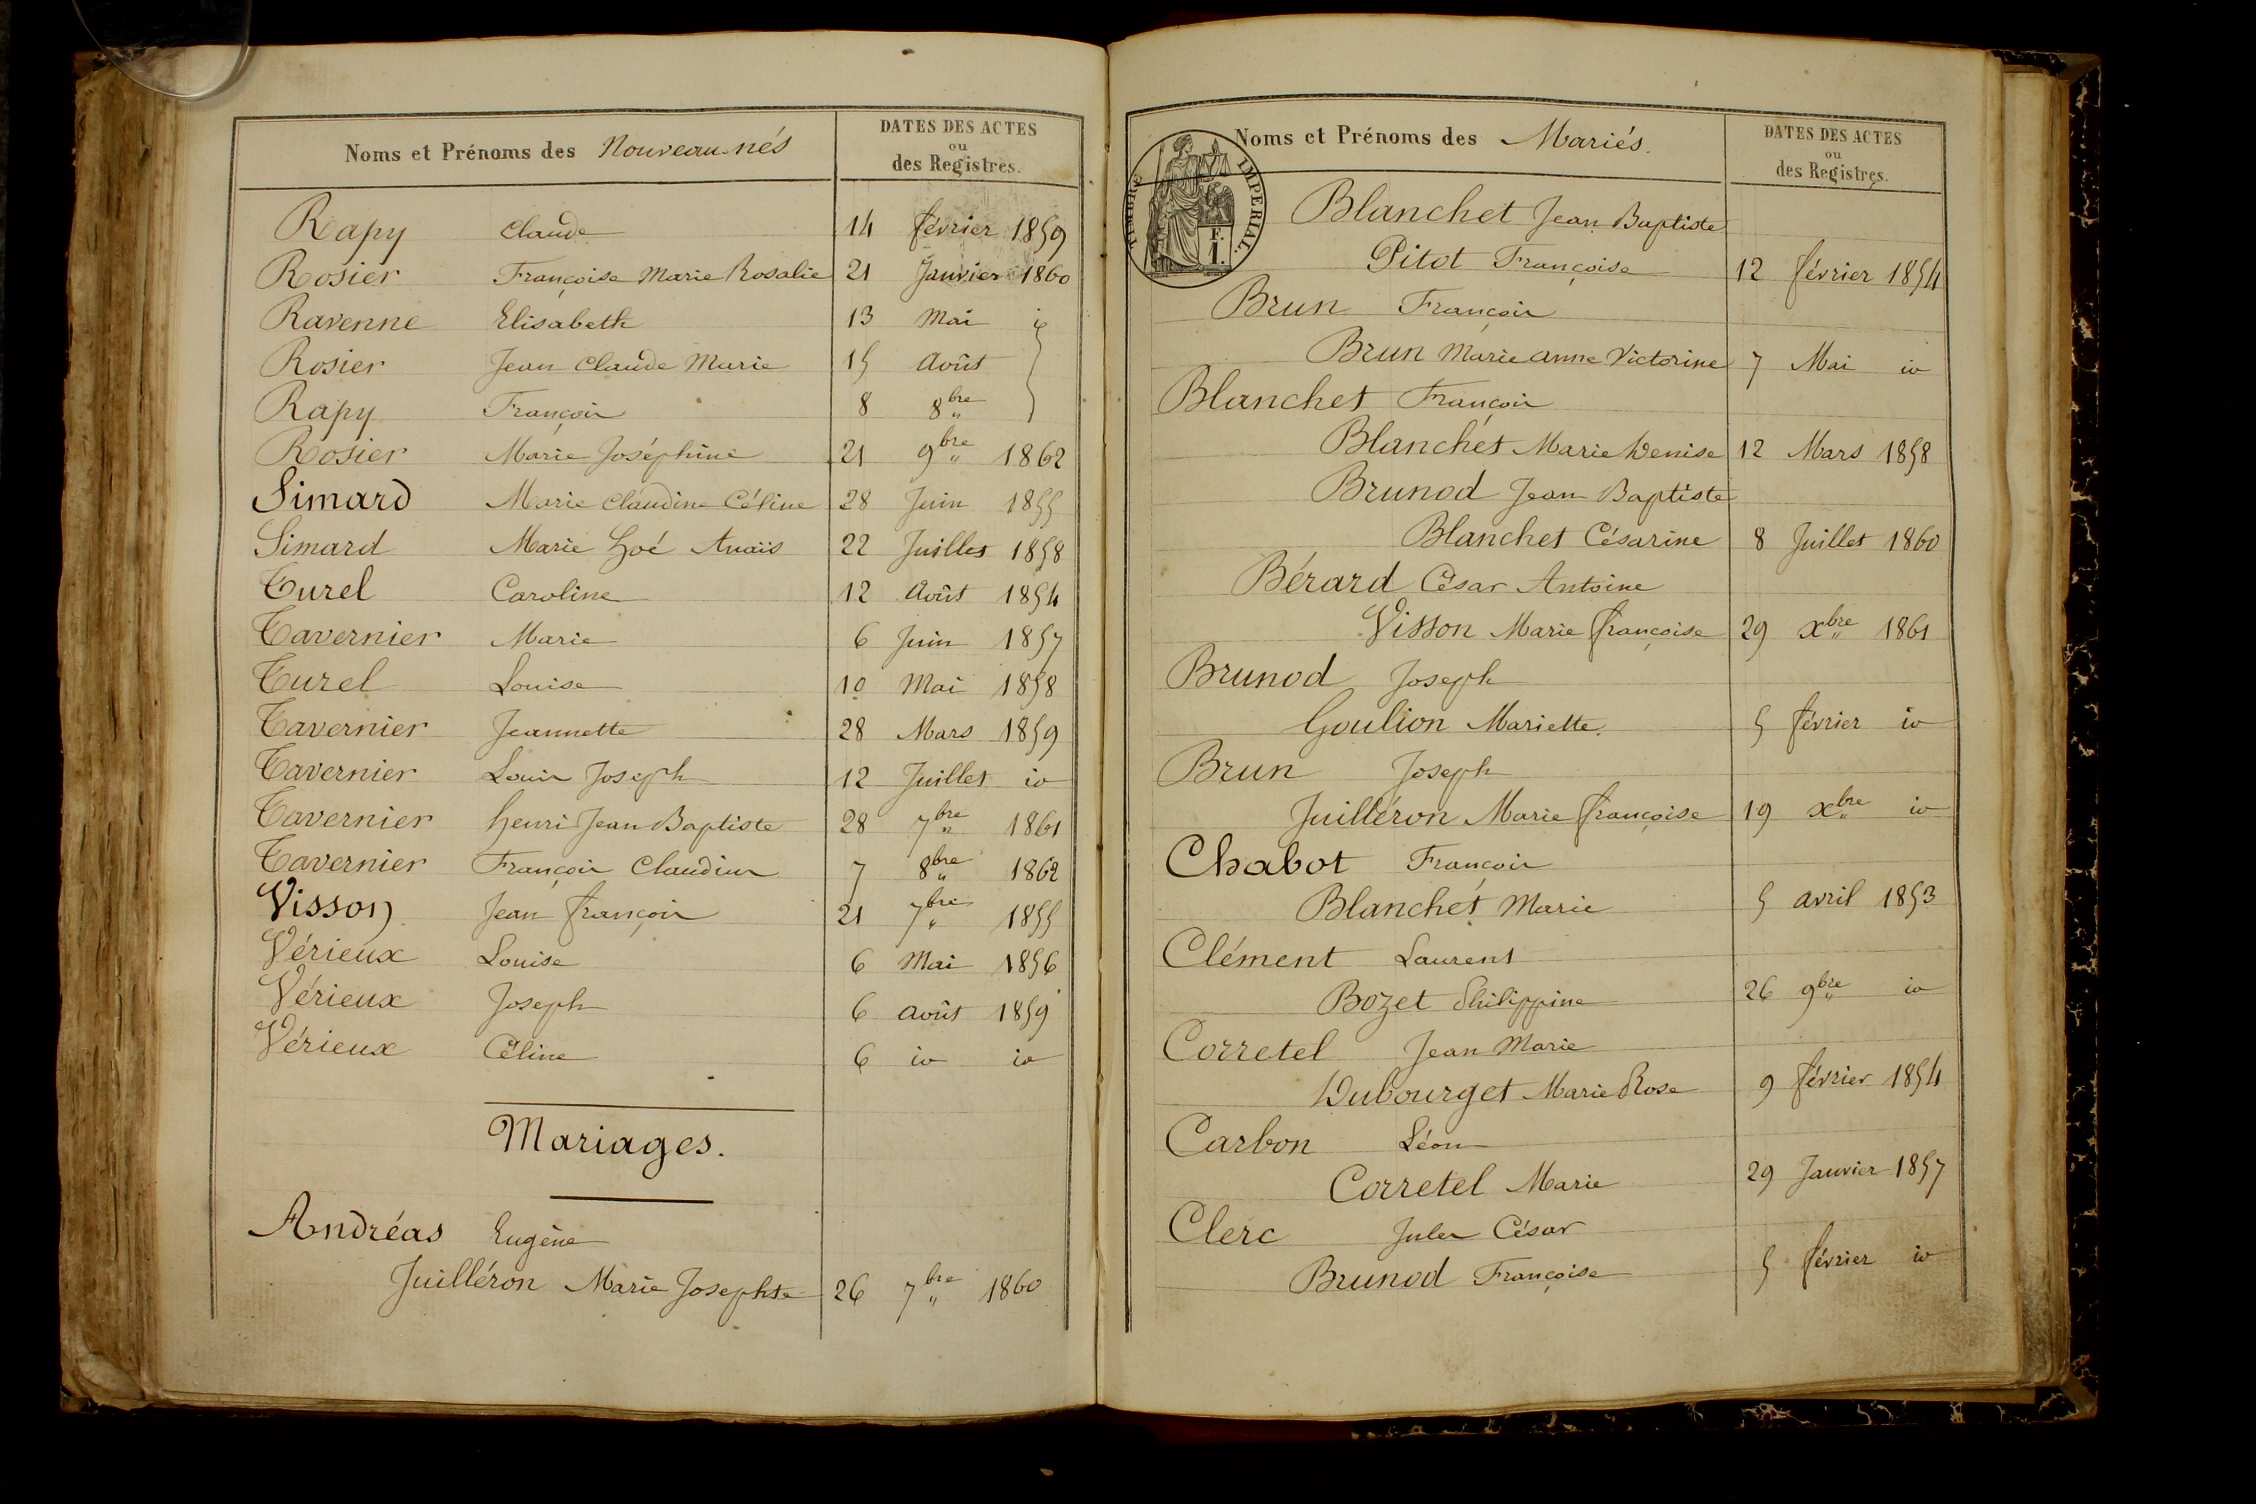 Noms et Prénoms des Nouveau-nés
DATES DES ACTES
ou
des Registres.
Rapy Claude 14 février 1859
Rosier Françoise Marie Rosalie 21 Janvier 1860
Ravenne Elisabeth 13 Mai io
Rosier Jean Claude Marie 15 Août
Rapy François 8 8bre "
Rosier Marie Joséphine 21 9bre " 1862
Simard Marie Claudine Céline 28 Juin 1855
Simard Marie Zoé Anaïs 22 Juillet 1858
Turel Caroline 12 Août 1854
Tavernier Marie 6 Juin 1857
Turel Louise 10 Mai 1858
Tavernier Jeannette 28 Mars 1859
Tavernier Louis Joseph 12 Juillet io
Tavernier henri Jean Baptiste 28 7bre " 1861
Tavernier François Claudius 7 8bre " 1862
Visson Jean François 21 7bre " 1855
Vérieux Louise 6 Mai 1856
Vérieux Joseph 6 Août 1859
Vérieux Céline 6 io io
Mariages.
Andréas Eugène
Juilléron Marie Josephte 26 7bre " 1860
Noms et Prénoms des Mariés.
DATES DES ACTES
ou
des Registres.
TIMBRE IMPERIAL.
F.
1.
Blanchet Jean Baptiste
Pitot Françoise 12 février 1854
Brun François
Brun Marie Anne Victorine 7 Mai io
Blanchet François
Blanchet Marie Denise 12 Mars 1858
Brunod Jean Baptiste
Blanchet Césarine 8 Juillet 1860
Bérard César Antoine
Visson Marie françoise 29 xbre " 1861
Brunod Joseph
Goulion Mariette. 5 février io
Brun Joseph
Juilléron Marie françoise 19 xbre " io
Chabot François
Blanchet Marie 5 avril 1853
Clément Laurent
Bozet Philippine 26 9bre " io
Corretel Jean Marie
Dubourget Marie Rose 9 février 1854
Carbon Léon
Corretel Marie 29 Janvier 1857
Clerc Jules César
Brunod Françoise 5 février io